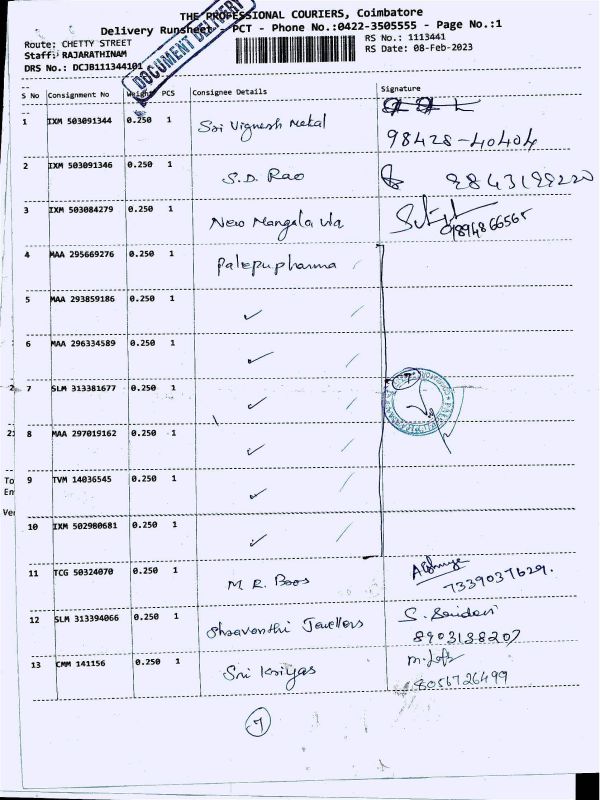 THE PROFESSIONAL COURIERS, Coimbatore
Delivery Runsheet - PCT - Phone No.:0422-3505555 - Page No.:1
DOCUMENT DELIVERY
Route: CHETTY STREET
RS No.: 1113441
Staff: RAJARATHINAM
RS Date: 08-Feb-2023
DRS No.: DCJB111344101
S No Consignment No Weight PCS Consignee Details Signature
1 IXM 503091344 0.250 1 Sri Vignesh Metal 98428-40404
2 IXM 503091346 0.250 1 S.D. Rao 9843199220
3 IXM 503084279 0.250 1 New Mangala Vla
4 MAA 295669276 0.250 1 Palepupharma
5 MAA 293859186 0.250 1 ✓
6 MAA 296334589 0.250 1 ✓
7 SLM 313381677 0.250 1 ✓ 7
8 MAA 297019162 0.250 1 ✓
9 TVM 14036545 0.250 1 ✓
10 IXM 502980681 0.250 1 ✓
11 TCG 50324070 0.250 1 M R. Bros 7339037629.
12 SLM 313394066 0.250 1 Shravanthi Jewellers 8903138207
13 CMM 141156 0.250 1 Sri Kriyas 8056726499
7